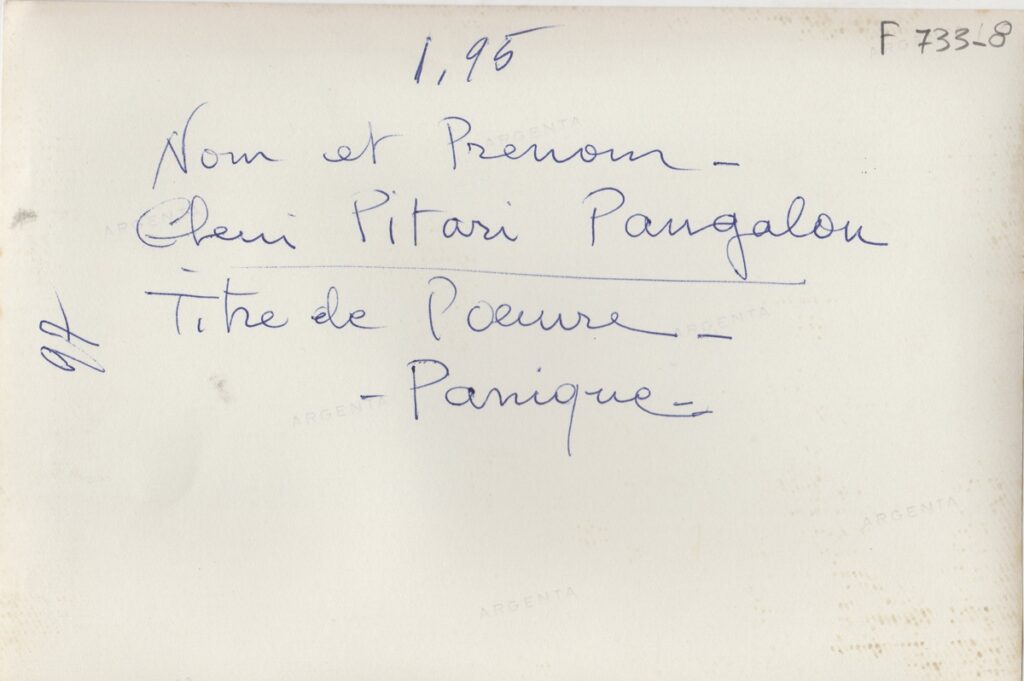 F 733-8
1,95
ARGENTA
Nom et Prenom -
Eleni Pitari Pangalou
Titre de l'œuvre -
ARGENTA
- Panique -
ARGENTA
ARGENTA
ARGENTA